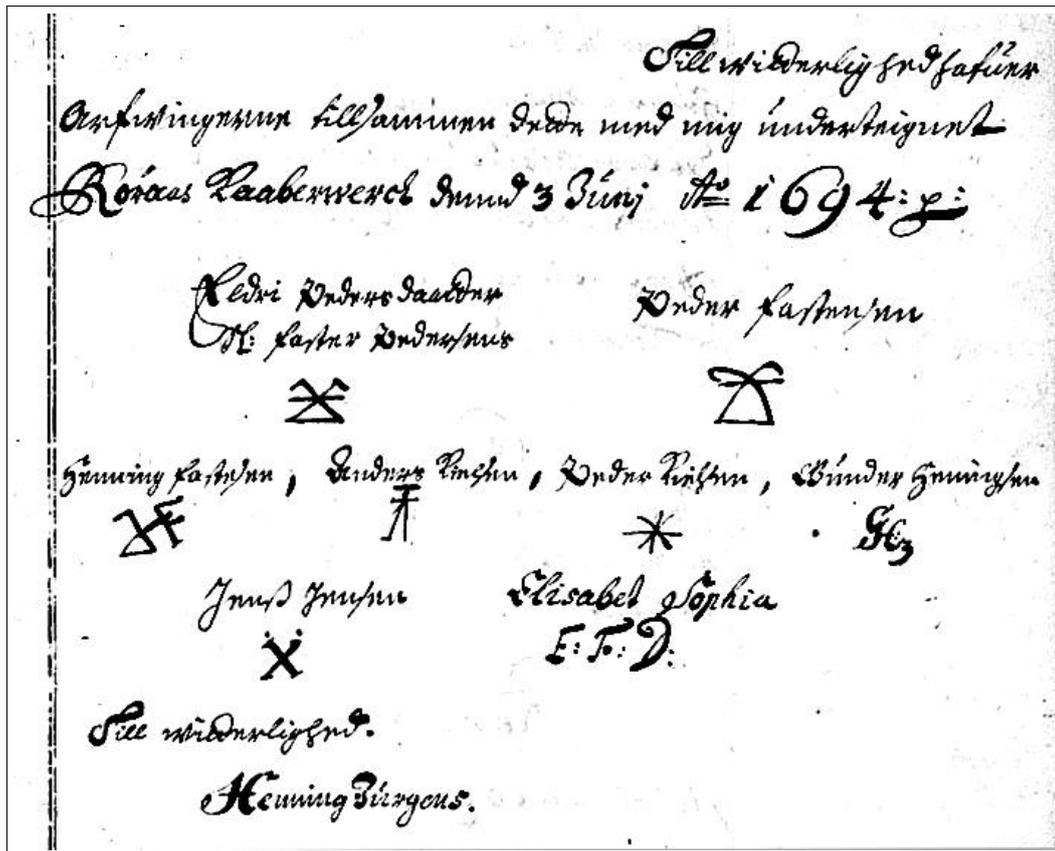 Till widderlighed hafuer
Arfwingerne tillsammen dette med mig underteignet
Röraas Kaaberwerck dennd 3 Junj Ao 1694: p:
Eldri Peders daatter Peder Fastensen
Sl: Faster Pedersens
Henning Fastesen, Anders Nielsen, Peder Nielsen, Gunder Heningsen
Jenß Jensen Elisabet Sophia
E: F: D:
Till widderlighed.
Henning Jürgens.